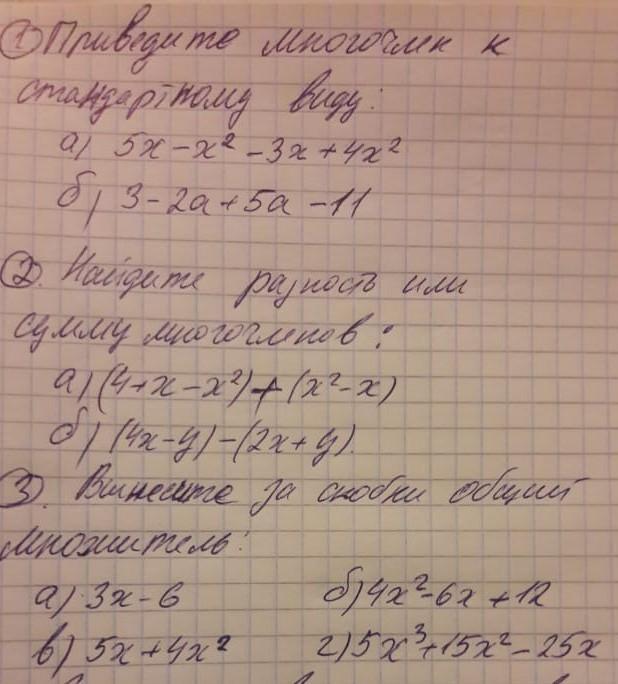 ① Приведите многочлен к
стандартному виду:
а) 5x - x² - 3x + 4x²
б) 3 - 2a + 5a - 11
②. Найдите разность или
сумму многочленов:
а) (4 + x - x²) + (x² - x)
б) (4x - y) - (2x + y).
③. Вынесите за скобки общий
множитель:
а) 3x - 6 б) 4x² - 6x + 12
в) 5x + 4x² г) 5x³ + 15x² - 25x